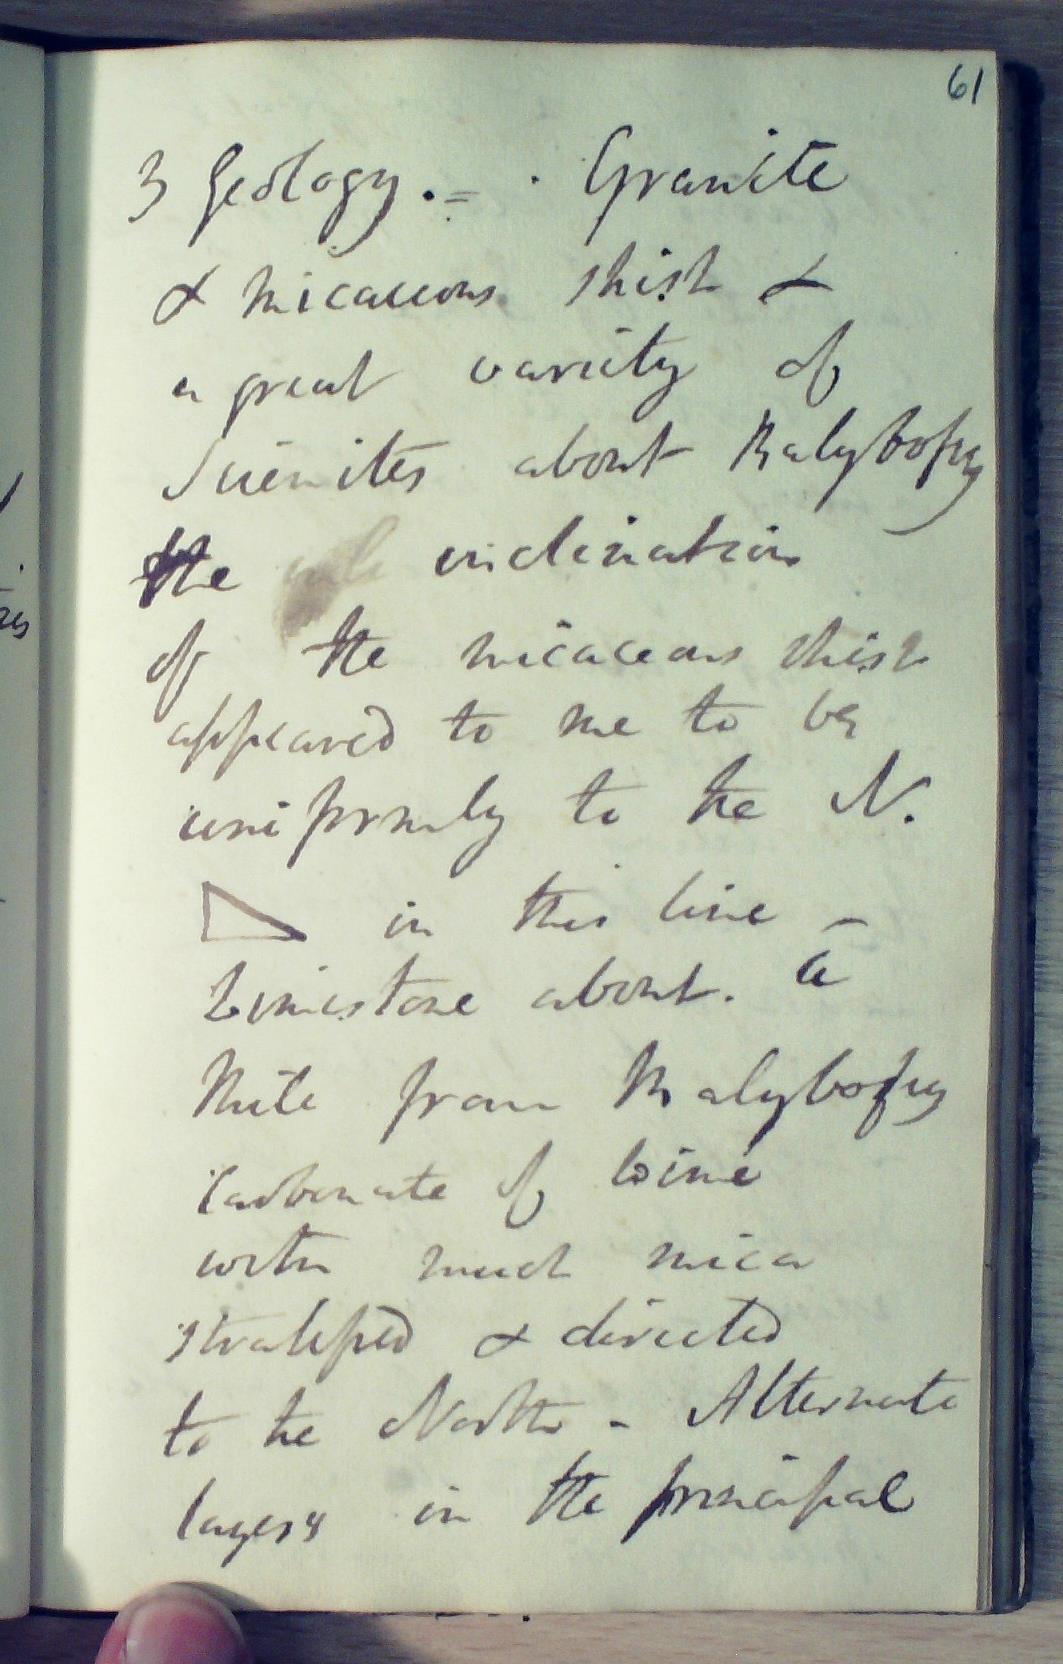 61
3 Geology. = . Granite
& micaceous shist &
a great variety of
Sienites about Balybofey
the inclination
of the micaceous shist
appeared to me to be
uniformly to the N.
in this line –
Limestone about. a
Mile from Balybofey
Carbonate of Lime
with much mica
stratified & directed
to the North - Alternate
layers in the principal